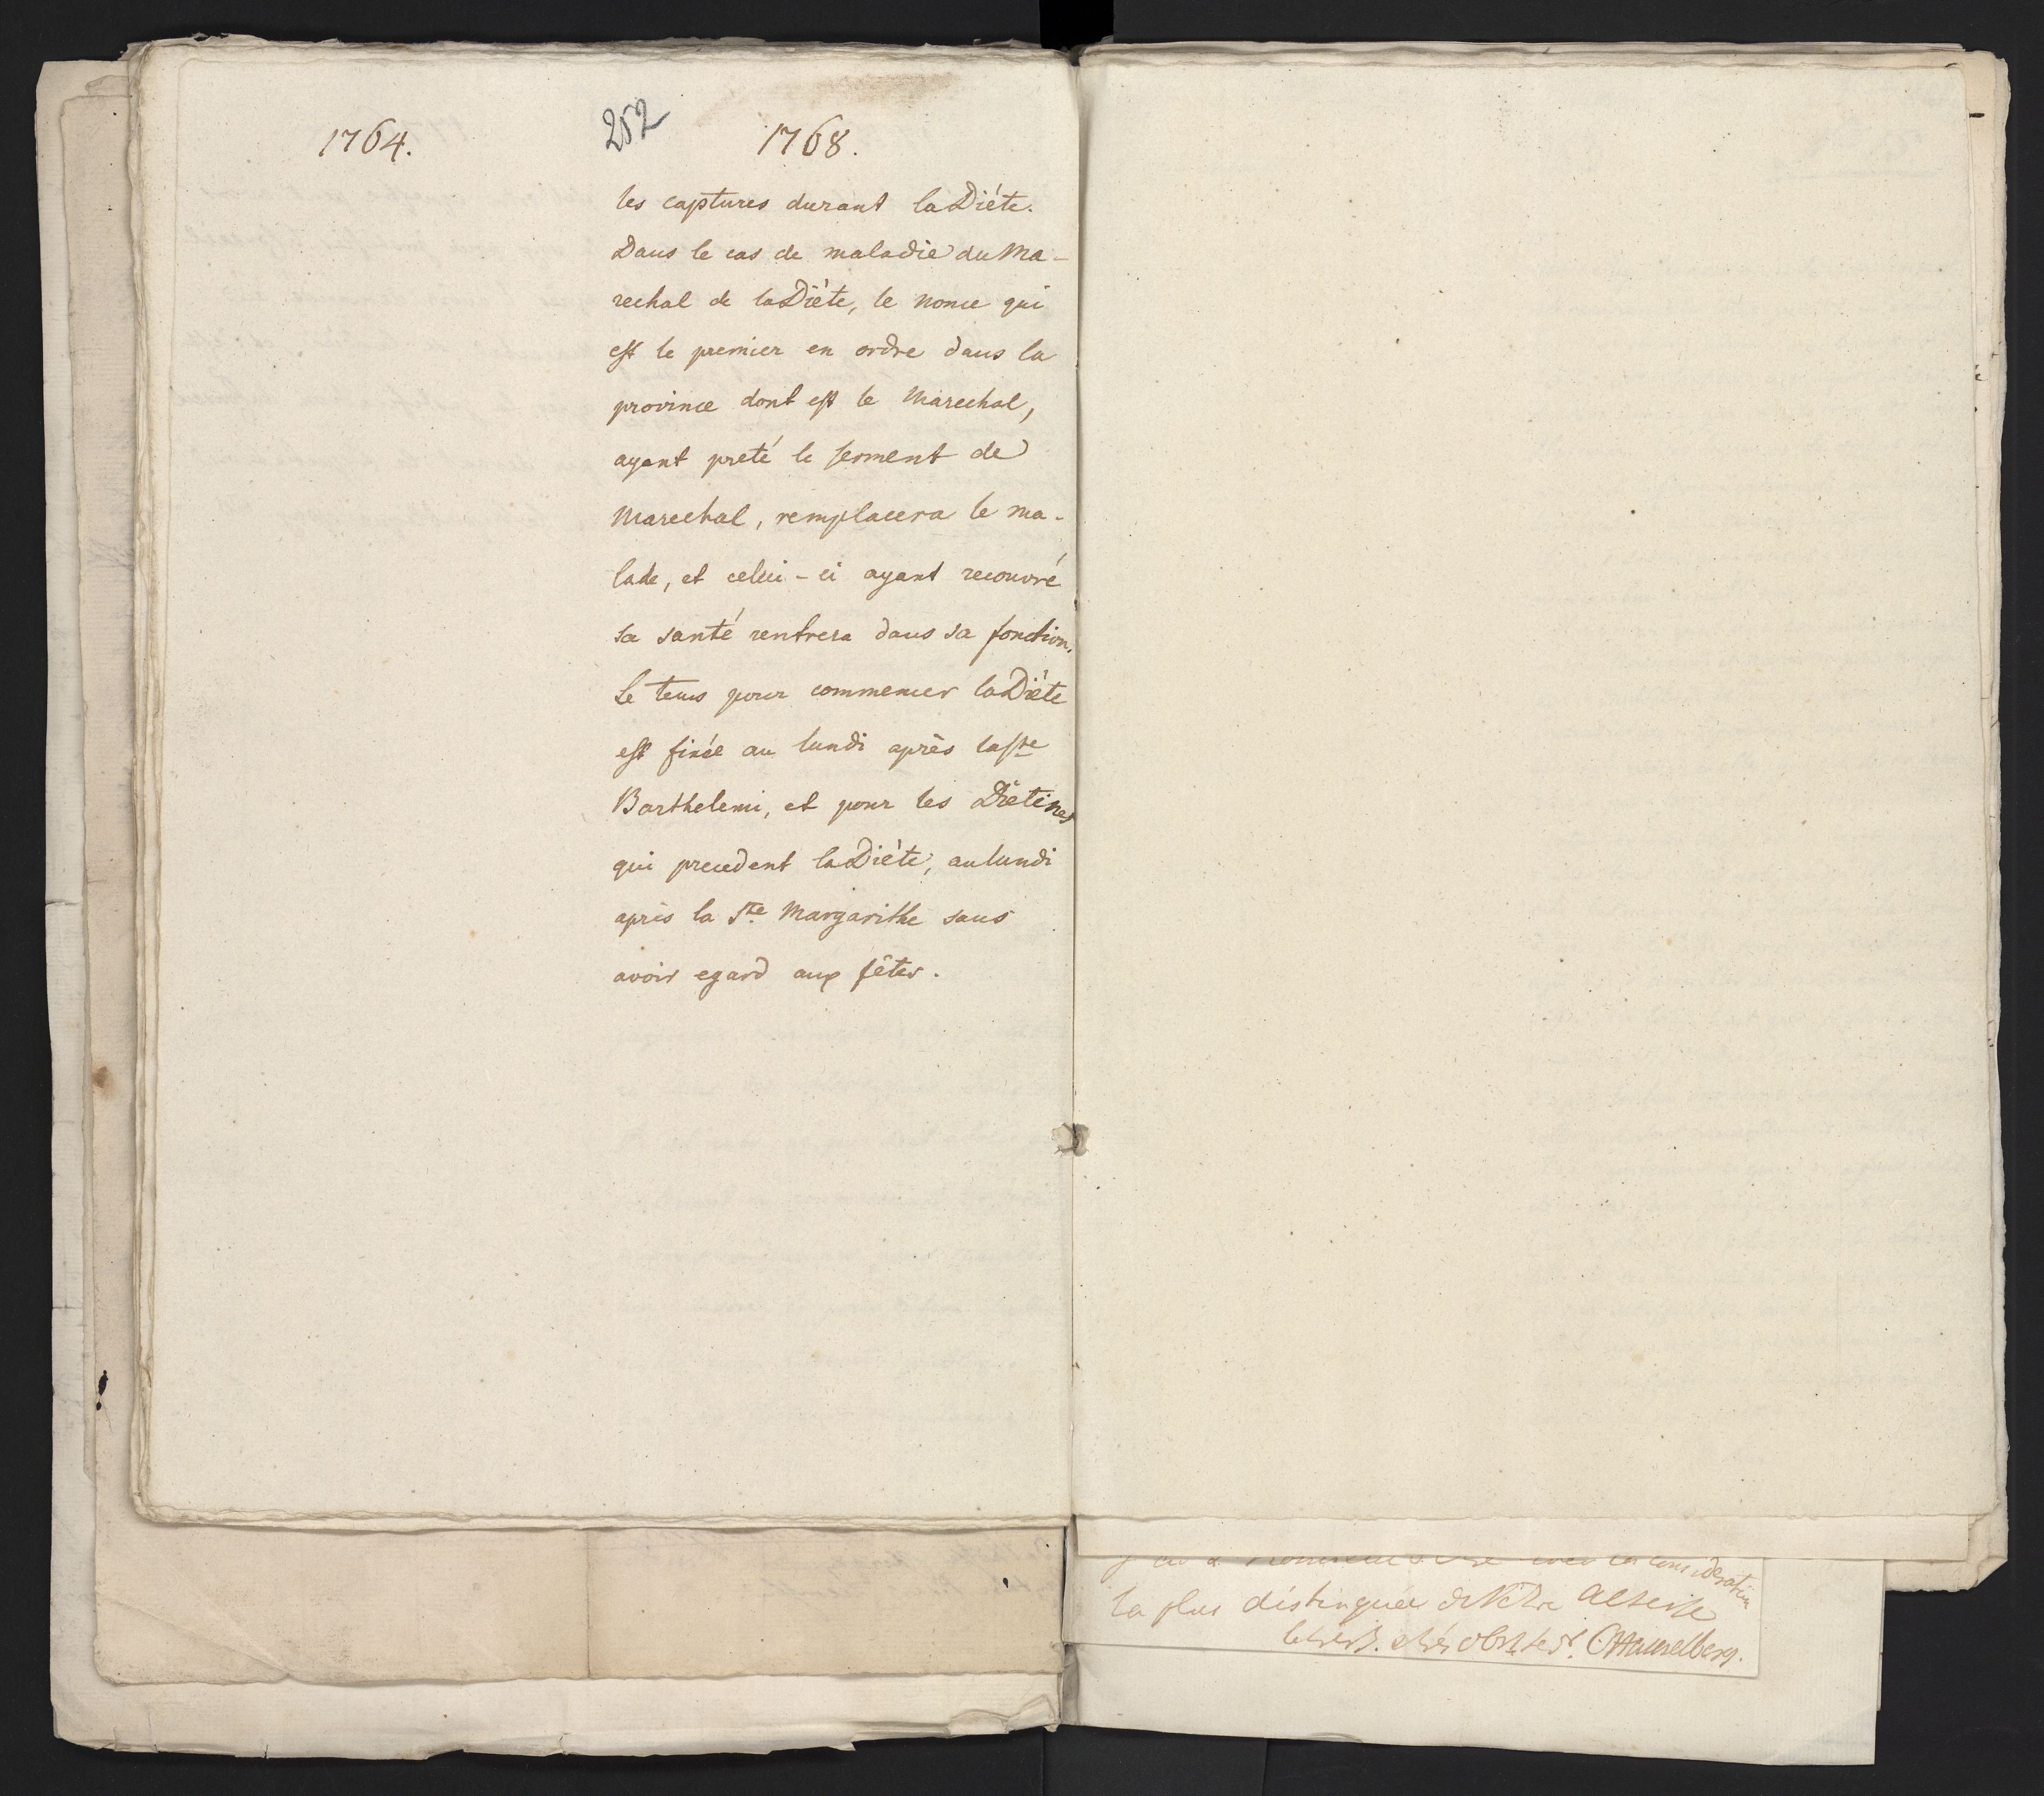 1764.
252
1768.
les captures durant la Diéte.
Dans le cas de maladie du Ma-
rechal de la Diéte, le nonce qui
est le premier en ordre dans la
province dont est le Marechal,
ayant preté le serment de
Marechal, remplacera le ma-
lade, et celui-ci ayant recouvré
sa santé rentrera dans sa fonction.
Le tems pour commencer la Diéte
est fixée au lundi après la Ste
Barthelemi, et pour les Diétines
qui precedent la Diéte, au lundi
après la Ste Margarithe sans
avoir egard aux fêtes.
consideration
la plus distinguée de Votre Altesse